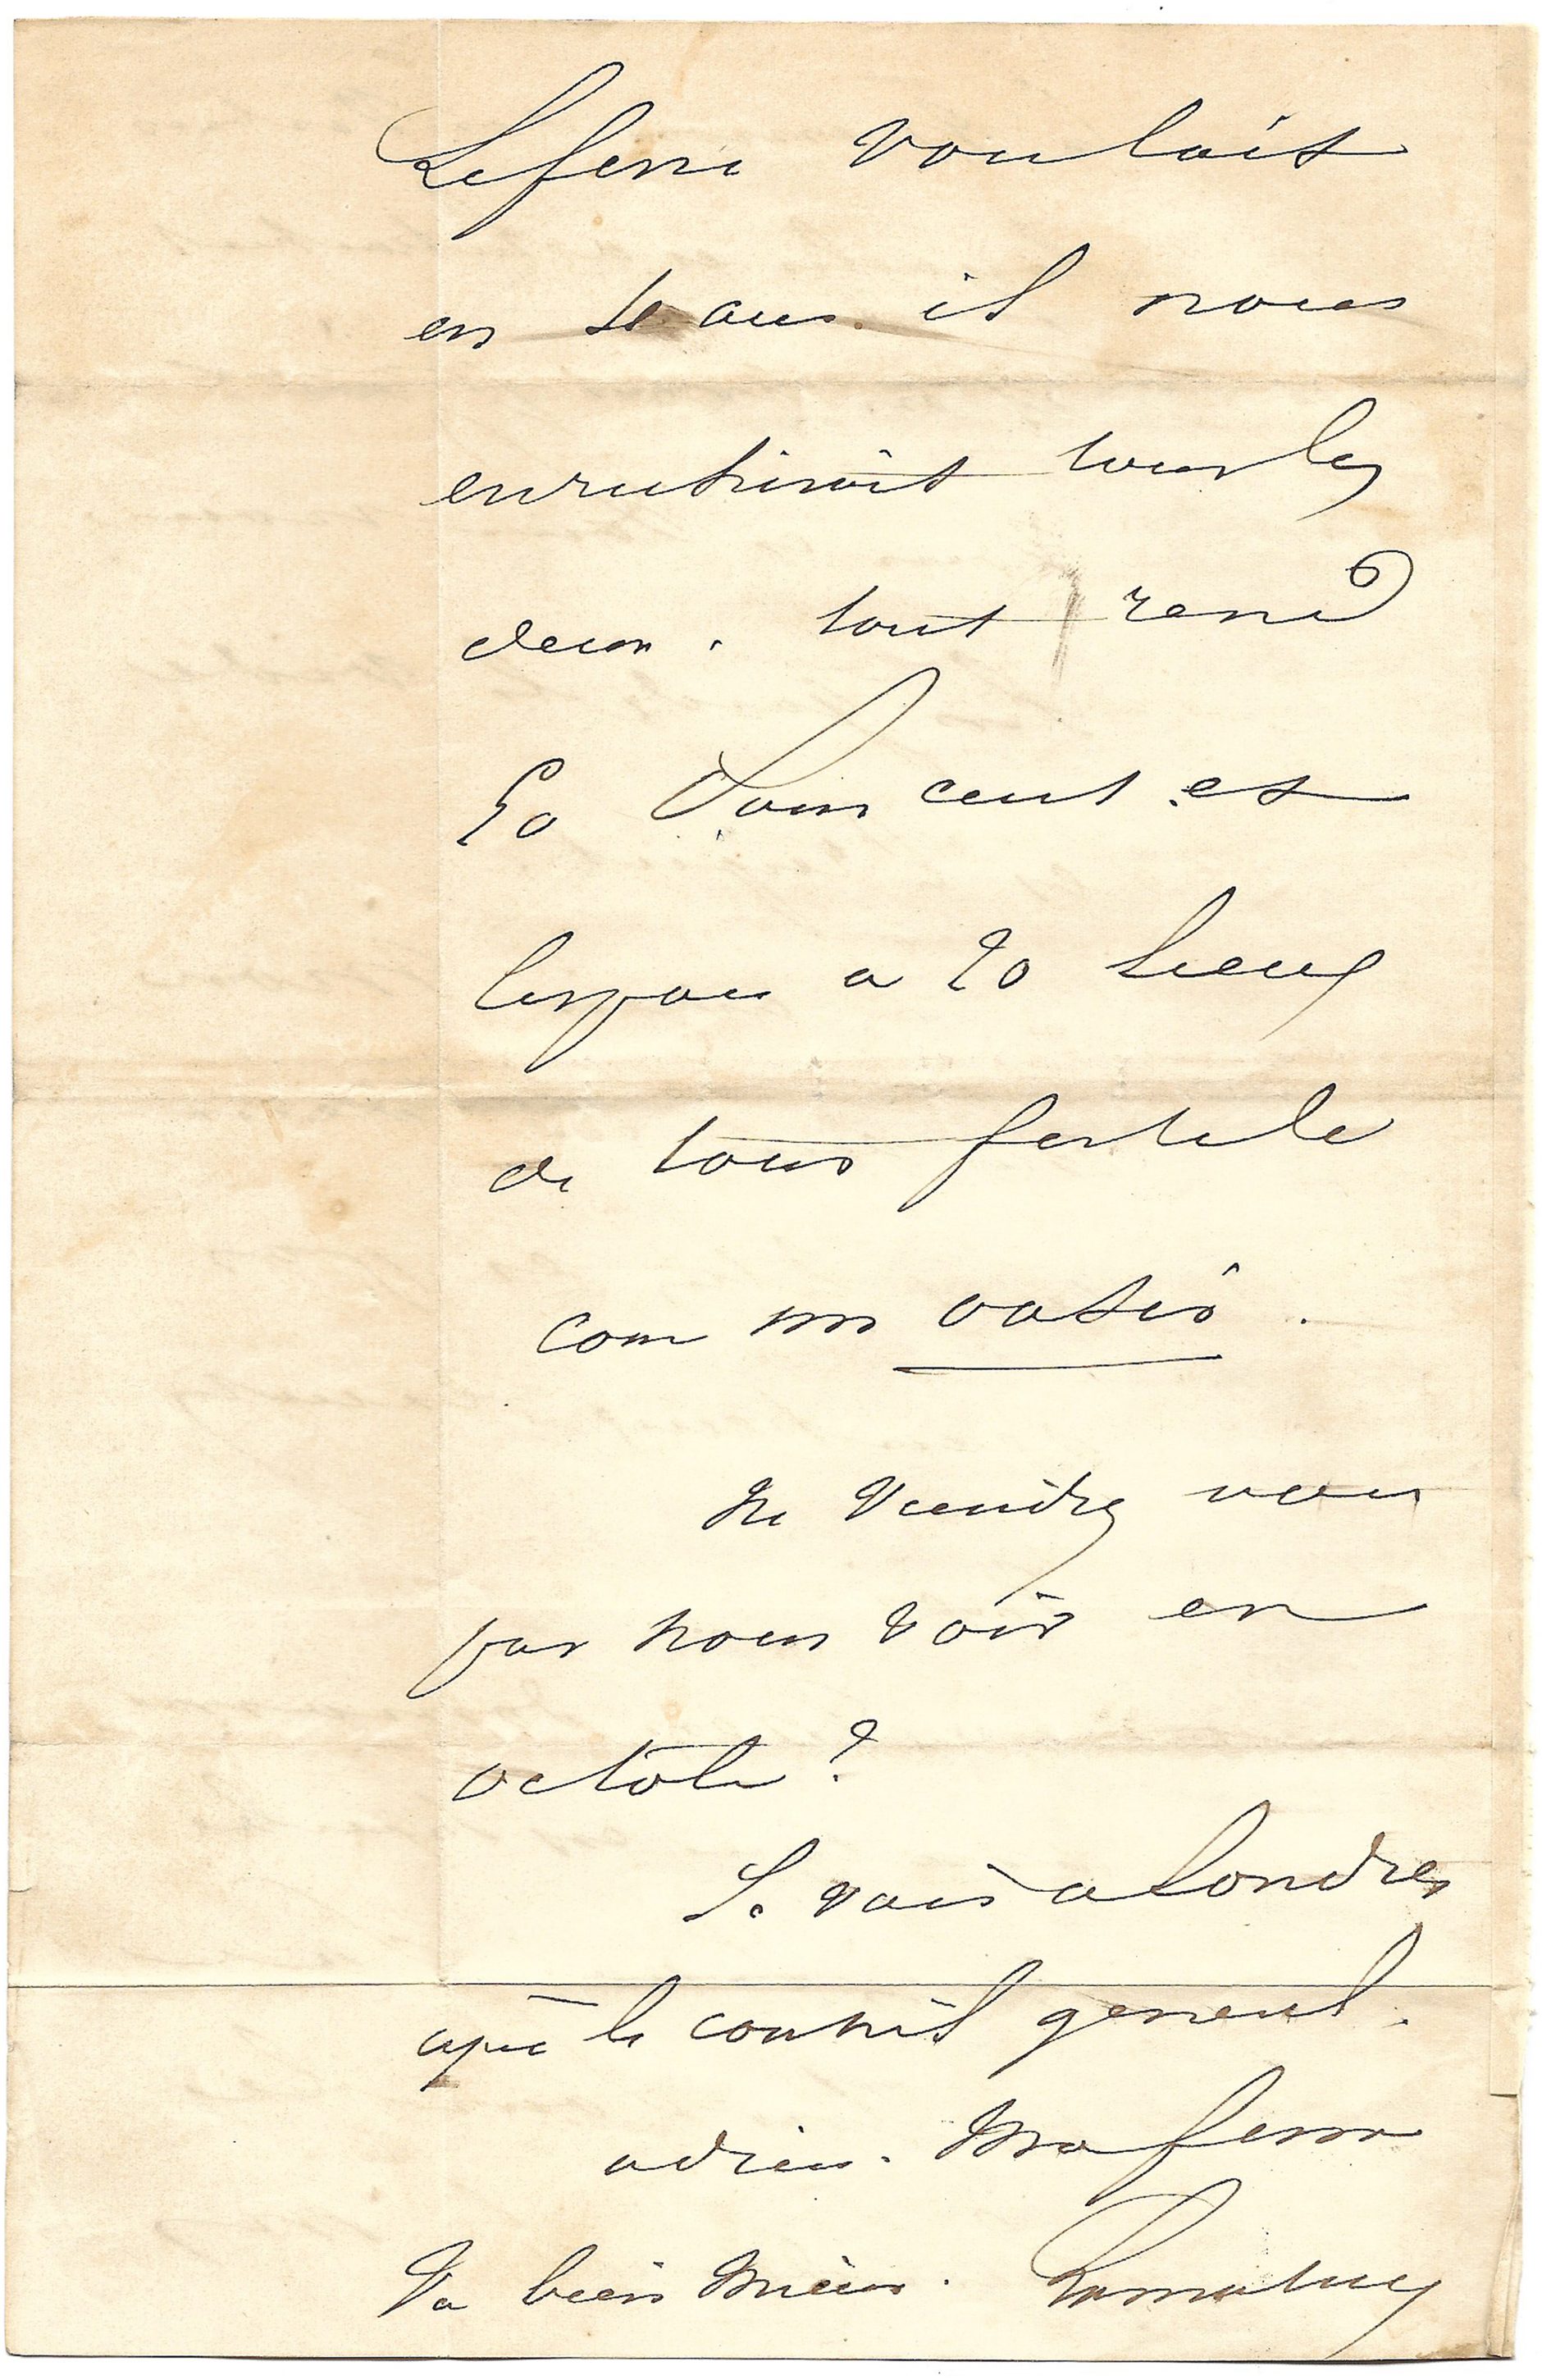 Lefevre voulait
en 10 ans il nous
enrichirait tous les
deux. tout rend
cent et
a 20 lieues
de tour fertile
com un oasis.
Ne viendrez vous
pas nous voir en
octobre?
Je vais a Londres
après le conseil general.
adieu. Ma femme
va bien mieux. Lamartine